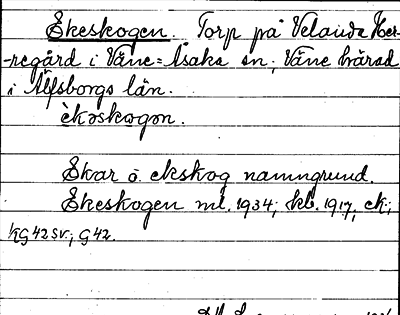 Ekeskogen. Torp på Velanda Her-
-regård i Väne=Åsaka sn, Väne härad
i Älfsborgs län.
èkəskogən.
Ekar o. ekskog namngrund.
Ekeskogen ml. 1934; kb. 1917; ek;
KG 42 SV; G 42.